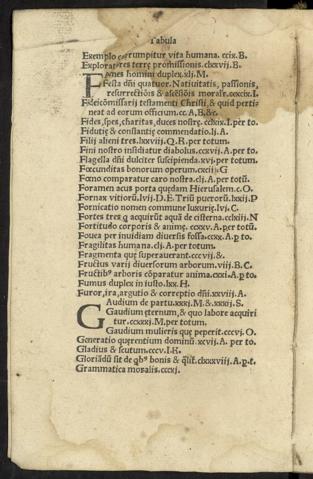 Tabula
Exemplo corrumpitur vita humana. ccix. B.
Exploratores terrę promissionis. clxxvij. B.
Fomes homini duplex. xlj. M.
Festa dñi quatuor. Natiuitatis, passionis,
resurrectiõis & ascẽsiõis moralr. ccxcix. I.
Fideicõmissarij testamenti Christi, & quid perti
neat ad eorum officium. cc A, B, &c.
Fides, spes, charitas, duces nostrę. I. per to.
Fidutię & constantię commendatio. lj. A.
Filij alieni tres. lxxviij. Q. R. per totum.
Fini nostro insidiatur diabolus. ccxvij. A. per to.
Flagella dñi dulciter suscipienda. xvj. per totum.
Fœcunditas bonorum operum. cxcij. G
Fœno comparatur caro nostra. clj. A. per totũ.
Foramen acus porta quędam Hierusalem. c. O.
Fornax vitiorũ. lvij. D. E. Triũ puerorũ. lxxij. P
Fornicatio nomen commune luxurię. lvj. C.
Fortes tres q acquirũt aquã de cisterna. cclxiij. N
Fortitudo corporis & animę. ccxxv. A. per totũ.
Fouea per inuidiam diuersis fossa. ccxx. A. p to.
Fragilitas humana. clj. A. per totum.
Fragmenta quę superauerant. cccvij. &.
Fructus varij diuersorum arborum. viij. B. C.
Fructibꝰ arboris cõparatur anima. cxxj. A. p to.
Fumus duplex in iusto. lxx. H.
Furor, ira, argutio & correptio dñi. xxviij. A.
Gaudium de partu. xxxj. M. & xxxij. S.
Gaudium ęternum, & quo labore acquiri
tur. ccxxxj. M. per totum.
Gaudium mulieris quę peperit. cccvj. O.
Generatio quęrentium dominũ. xcvij. A. per to.
Gladius & scutum. cccv. I. K.
Gloriãdũ sit de qbꝰ bonis & qlit. clxxxviij. A. p. t.
Grammatica moralis. cccxj.